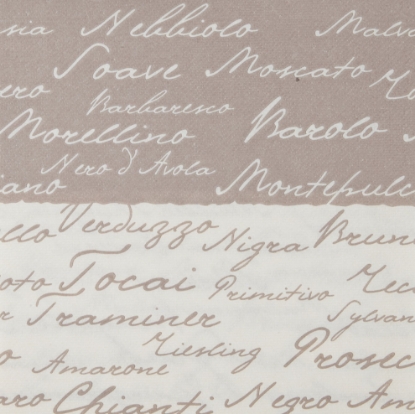 sia Nebbiolo Malva
Soave Moscato
ero Barbaresco
Morellino Barolo
Nero d'Avola
iano Montepulc
ello Verduzzo Nigra Brun
oto Tocai Primitivo
r Traminer Sylvan
o Amarone Riesling Prosec
aro Chianti Negro Am